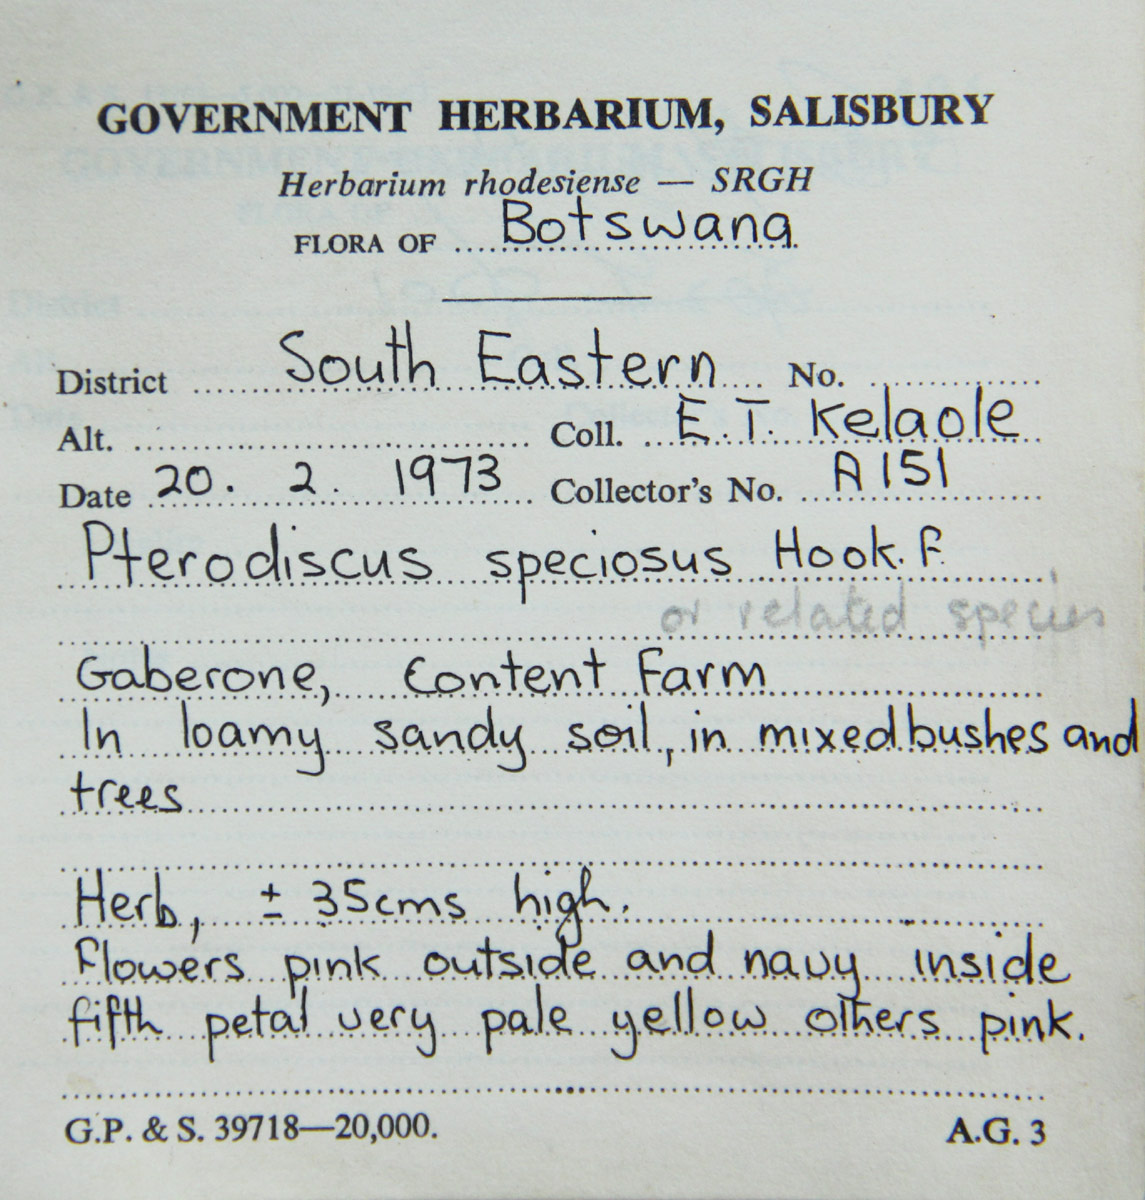 GOVERNMENT HERBARIUM, SALISBURY
Herbarium rhodesiense — SRGH
FLORA OF Botswana
District South Eastern No.
Alt. Coll. E.T. Kelaole
Date 20. 2. 1973 Collector's No. A151
Pterodiscus speciosus Hook. F.
or related species
Gaberone, Content Farm
In loamy sandy soil, in mixed bushes and
trees
Herb, ± 35cms high.
Flowers pink outside and navy inside
fifth petal very pale yellow others pink.
G.P. & S. 39718—20,000. A.G. 3